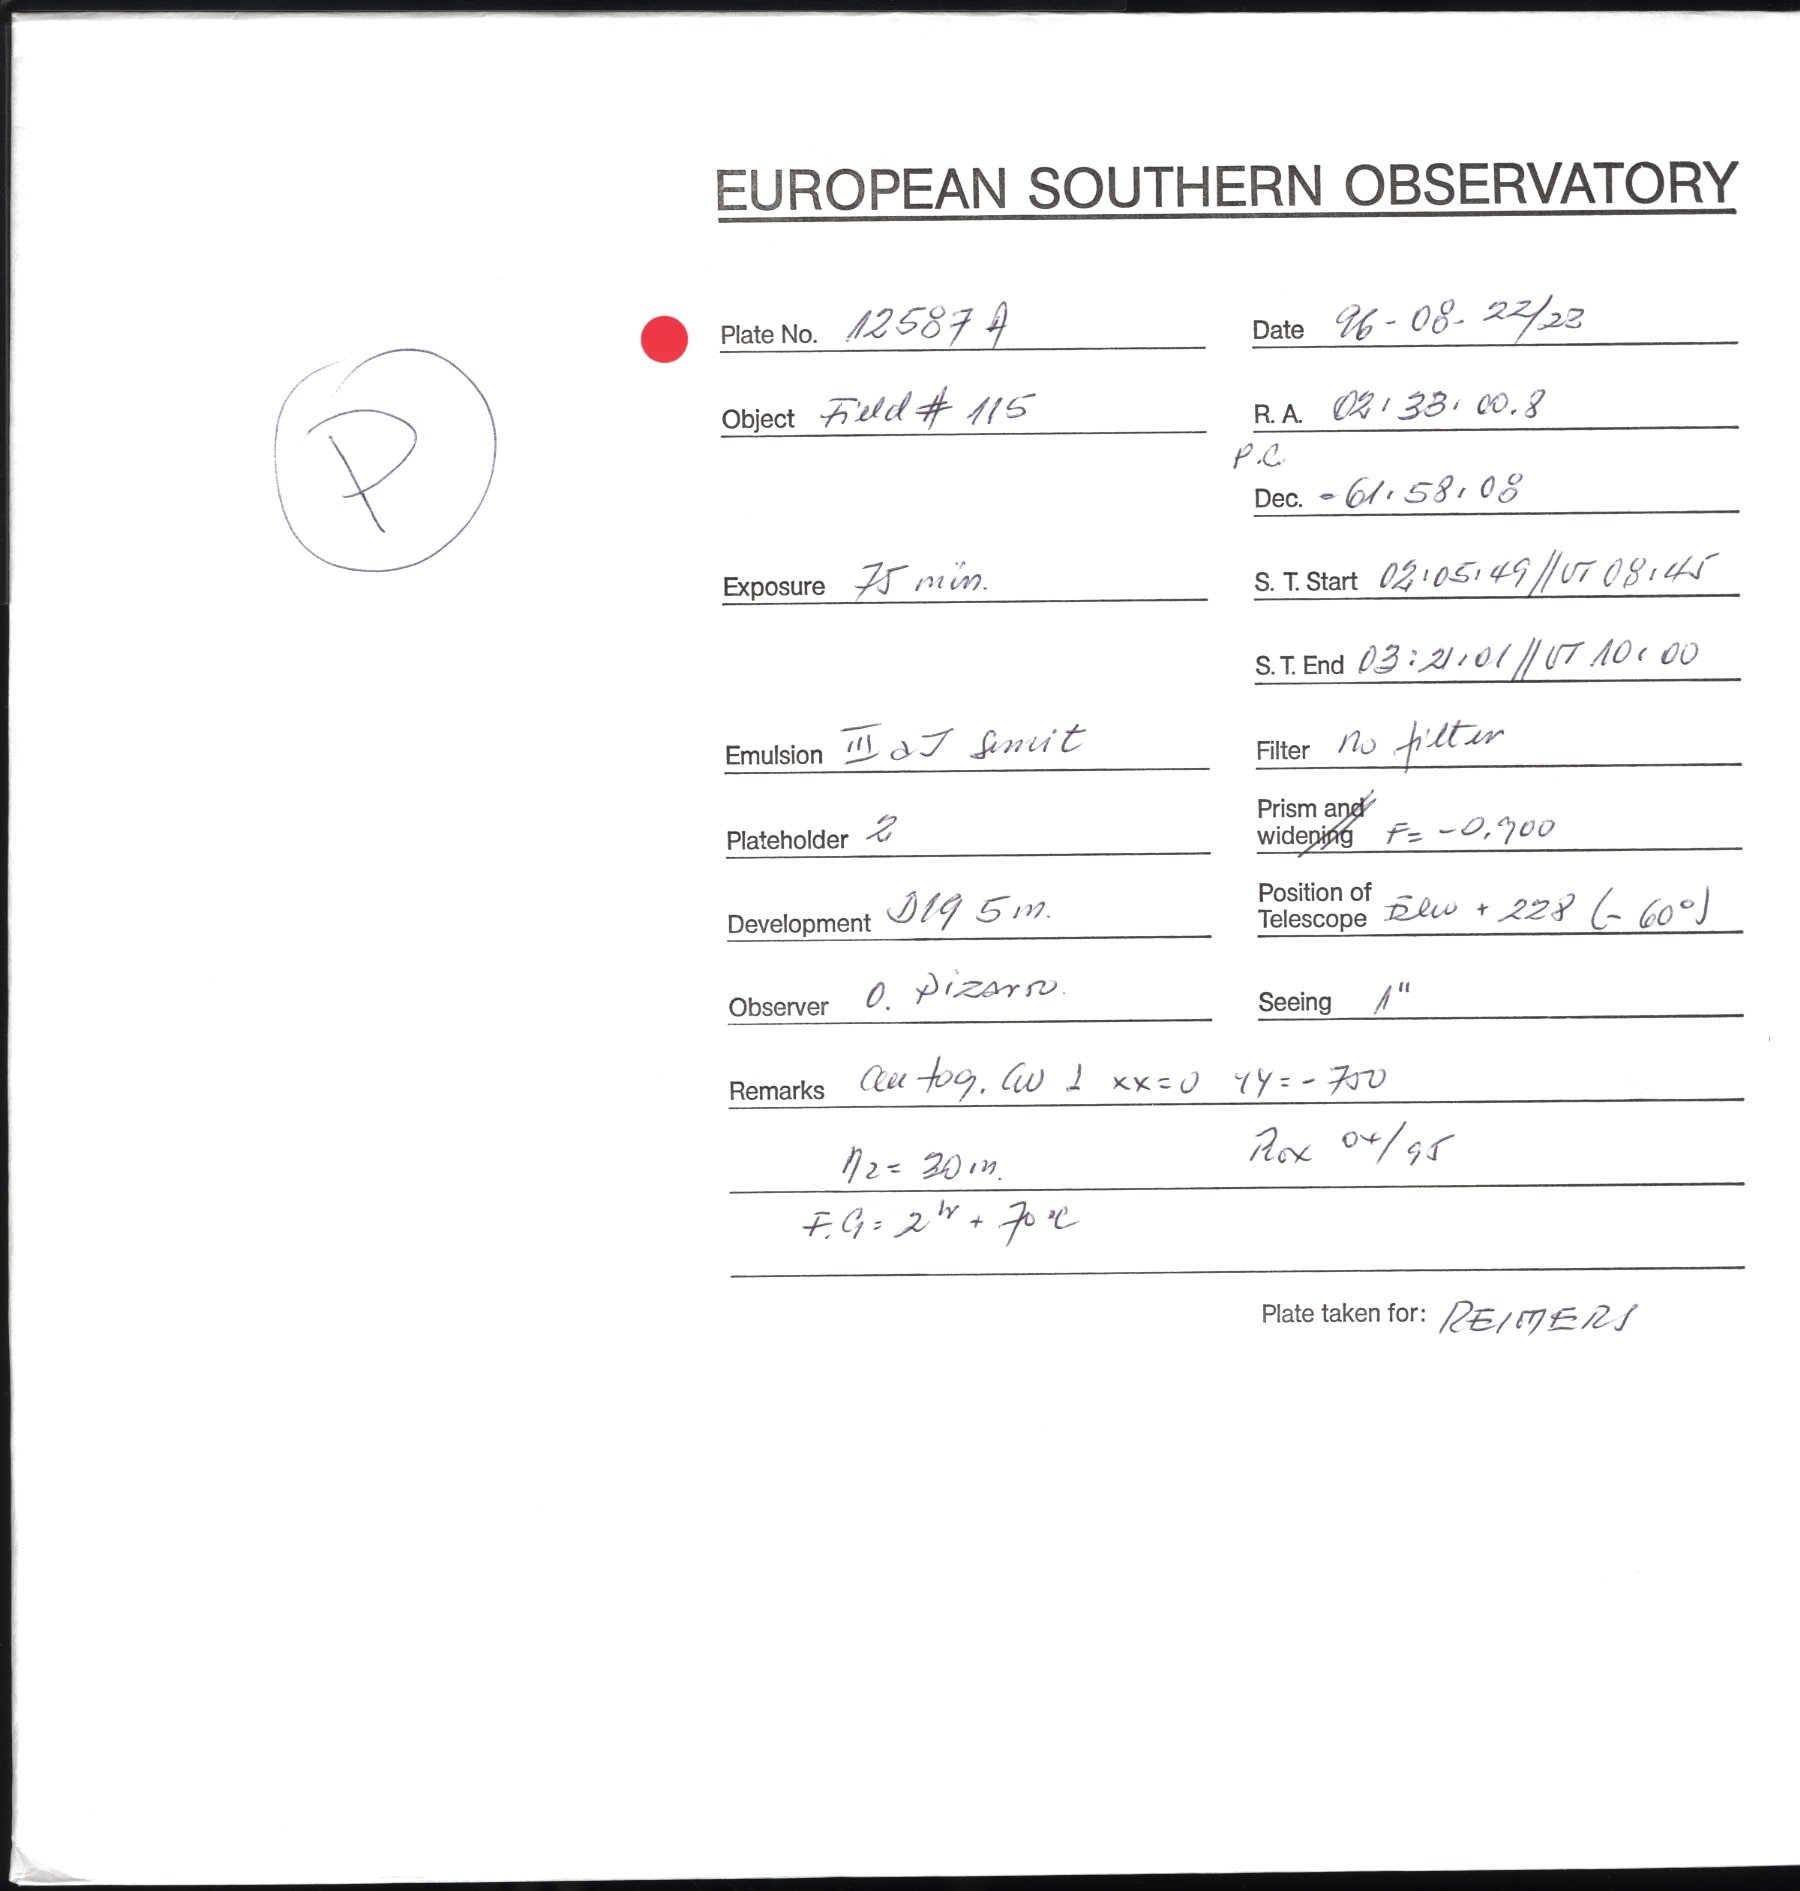 EUROPEAN SOUTHERN OBSERVATORY
P
Plate No. 12587 A
Date 96-08-22/23
Object Field # 115
R. A. 02:33:00.8
P.C.
Dec. -61:58:08
Exposure 75 min.
S. T. Start 02:05:49//UT 08:45
S. T. End 03:21:01//UT 10:00
Emulsion III aJ
Filter no filter
Prism and widening F= -0.900
Plateholder 2
Position of Telescope + 228 (-60°)
Development D19 5 m.
Observer O. Pizarro.
Seeing 1"
Remarks xx=0 yy=-700
N2= 30 m.
04/95
F.G= 2 hr + 70°C
Plate taken for: REIMERS